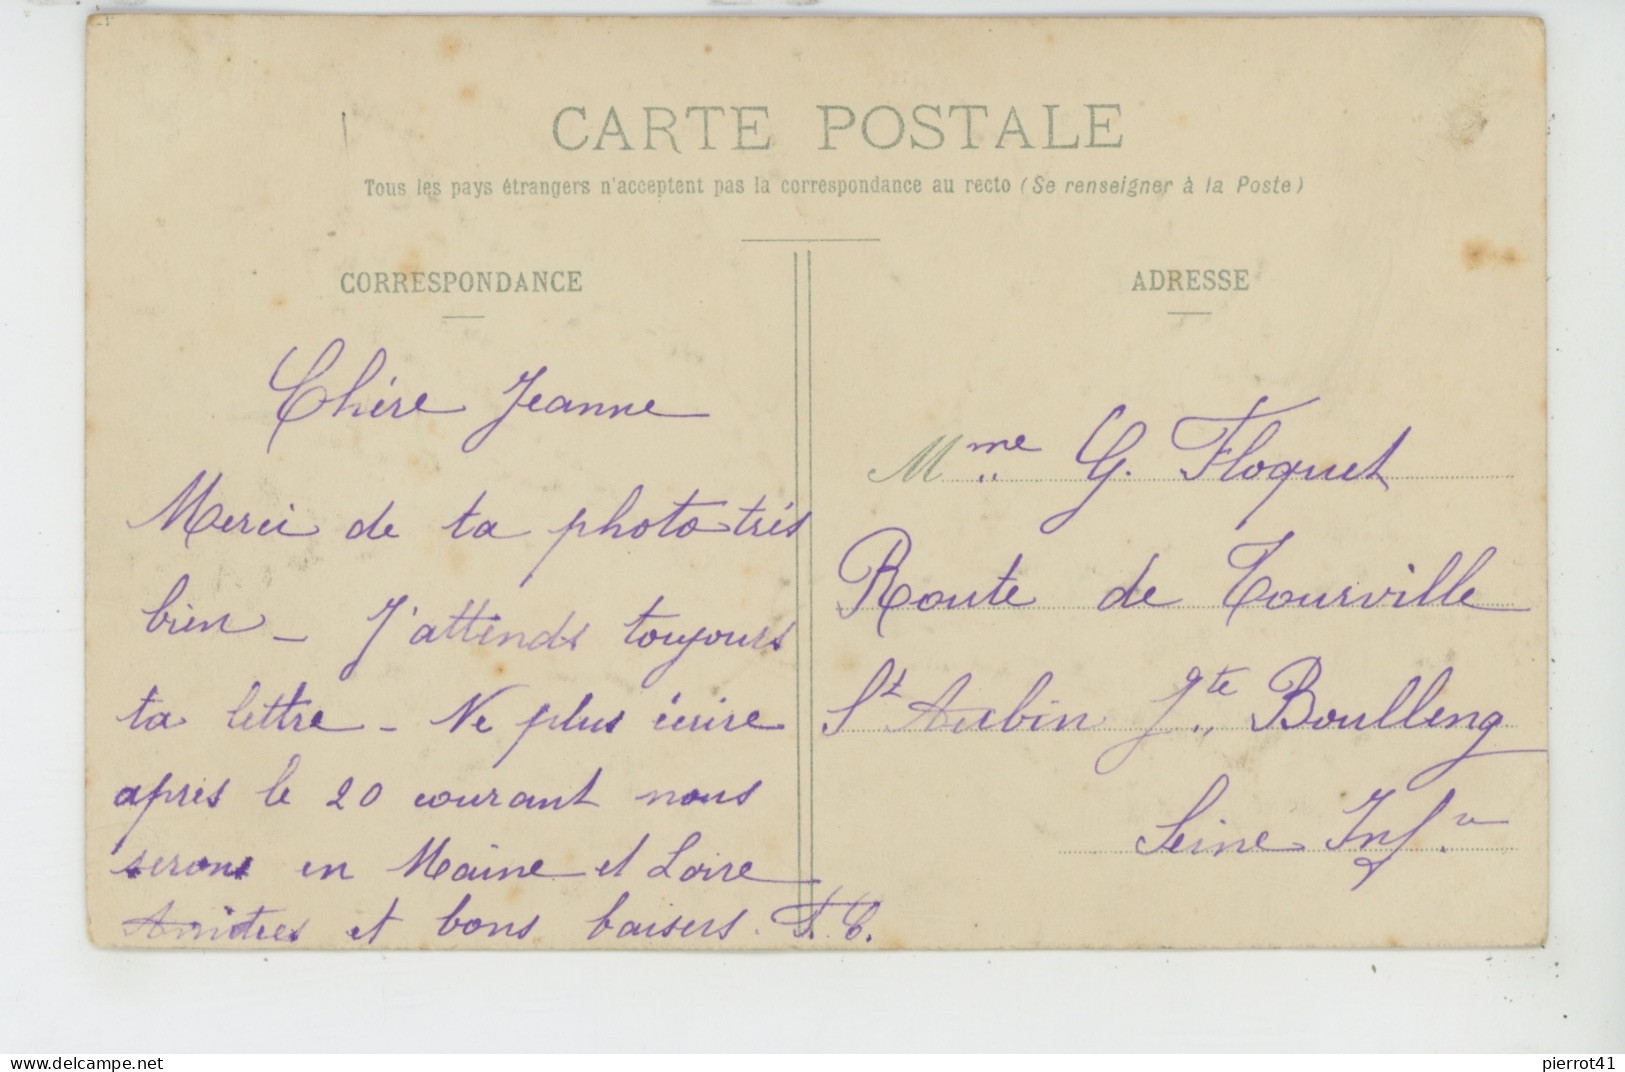 CARTE POSTALE
Tous les pays étrangers n'acceptent pas la correspondance au recto (Se renseigner à la Poste)
CORRESPONDANCE
Chère Jeanne
Merci de ta photo très
bien _ J'attends toujours
ta lettre _ Ne plus écrire
après le 20 courant nous
serons en Maine et Loire
Amitiés et bons baisers. T. C.
ADRESSE
Mme G. Floquet
Route de Tourville
St Aubin Jte Boulleng
Seine Infre
delcampe.net
pierrot41